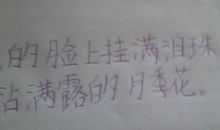 的脸上挂满泪珠
沾满露的月季花。